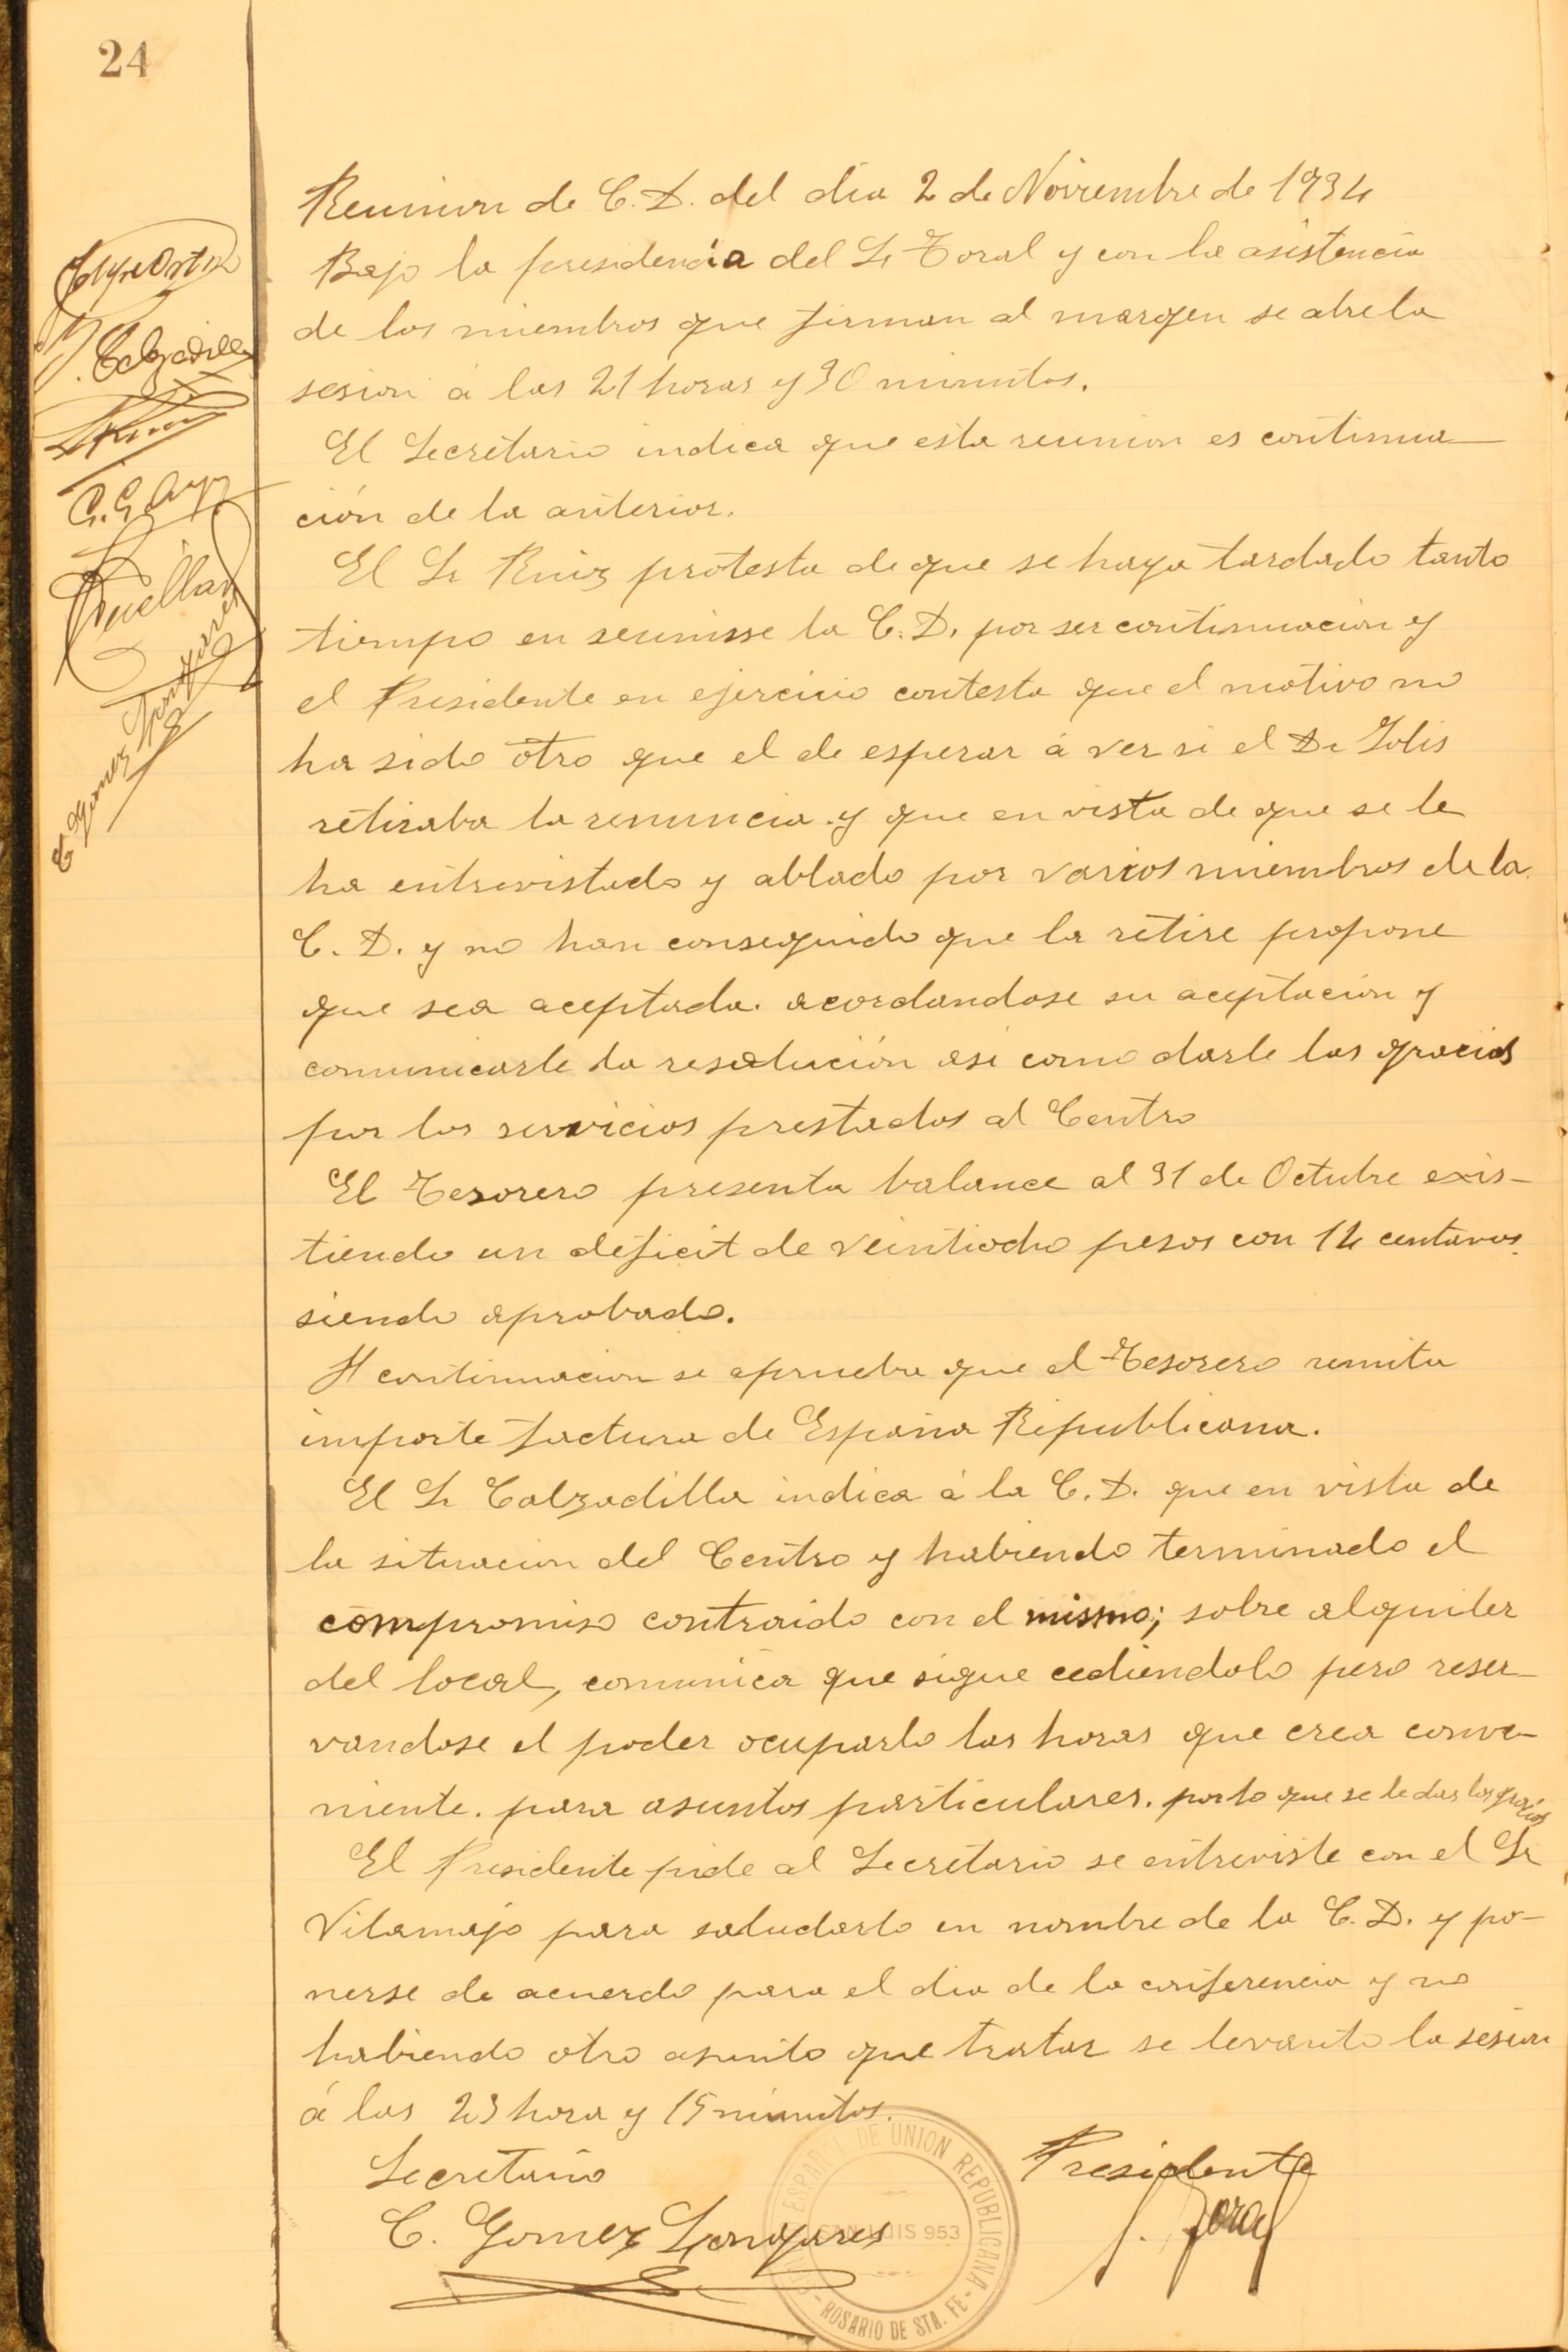 24
Reunion de C. D. del dia 2 de Noviembre de 1934
Bajo la presidencia del Sr Toral y con la asistencia
de los miembros que firman al margen se abre la
sesion á las 21 horas y 30 minutos.
El Secretario indica que esta reunion es continua-
ción de la anterior.
El Sr Ruiz protesta de que se haya tardado tanto
tiempo en reunirse la C. D. por ser continuacion y
el Presidente en ejercicio contesta que el motivo no
ha sido otro que el de esperar á ver si el Dr Solis
retiraba la renuncia y que en vista de que se le
ha entrevistado y ablado por varios miembros de la
C. D. y no han conseguido que la retire propone
que sea aceptada. acordandose su aceptacion y
comunicarle la resolución asi como darle las gracias
por los servicios prestados al Centro
El Tesorero presenta balance al 31 de Octubre exis-
tiendo un deficit de veintiocho pesos con 14 centavos.
siendo aprobado.
A continuacion se aprueba que el Tesorero remita
importe factura de España Republicana.
El Sr Calzadilla indica á la C. D. que en vista de
la situacion del Centro y habiendo terminado el
compromiso contraido con el mismo; sobre alquiler
del local, comunica que sigue cediendolo pero reser-
vandose el poder ocuparlo las horas que crea conve-
niente. para asuntos particulares. por lo que se le dan las gracias
El Presidente pide al Secretario se entreviste con el Sr
Vilamajo para saludarlo en nombre de la C. D. y po-
nerse de acuerdo para el dia de la conferencia y no
habiendo otro asunto que tratar se levanto la sesion
á las 23 hora y 15 minutos.
Secretario
Presidente
C. Gomez Langares
J. Toral
ESPAÑOL DE UNION REPUBLICANA
SAN LUIS 953
- ROSARIO DE STA. FE -
Calzadilla
Cuellar
C Gomez